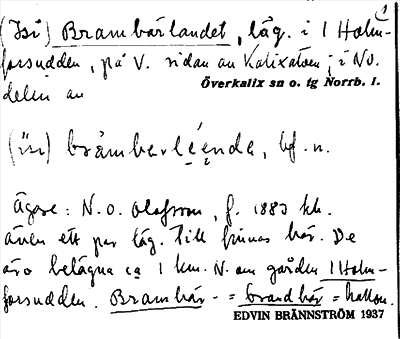 (Isi) Brambärlandet, läg. i 1 Holm-
forsudden, på V. sidan av Kalixälven; i NO.
delen av
Överkalix sn o. tg Norrb. l.
(isi) bråmberléende, bf. n.
Ägare: N. O. Olofsson, f. 1883 kh.
även ett par läg. till finnas här. De
äro belägna ca 1 km. N. om gården 1 Holm-
forsudden. Brambär- = brandbär = hallon.
EDVIN BRÄNNSTRÖM 1937